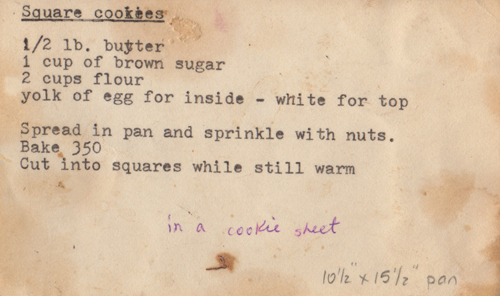 Square cookies
1/2 lb. butter
1 cup of brown sugar
2 cups flour
yolk of egg for inside - white for top
Spread in pan and sprinkle with nuts.
Bake 350
Cut into squares while still warm
in a cookie sheet
10½" x 15½" pan